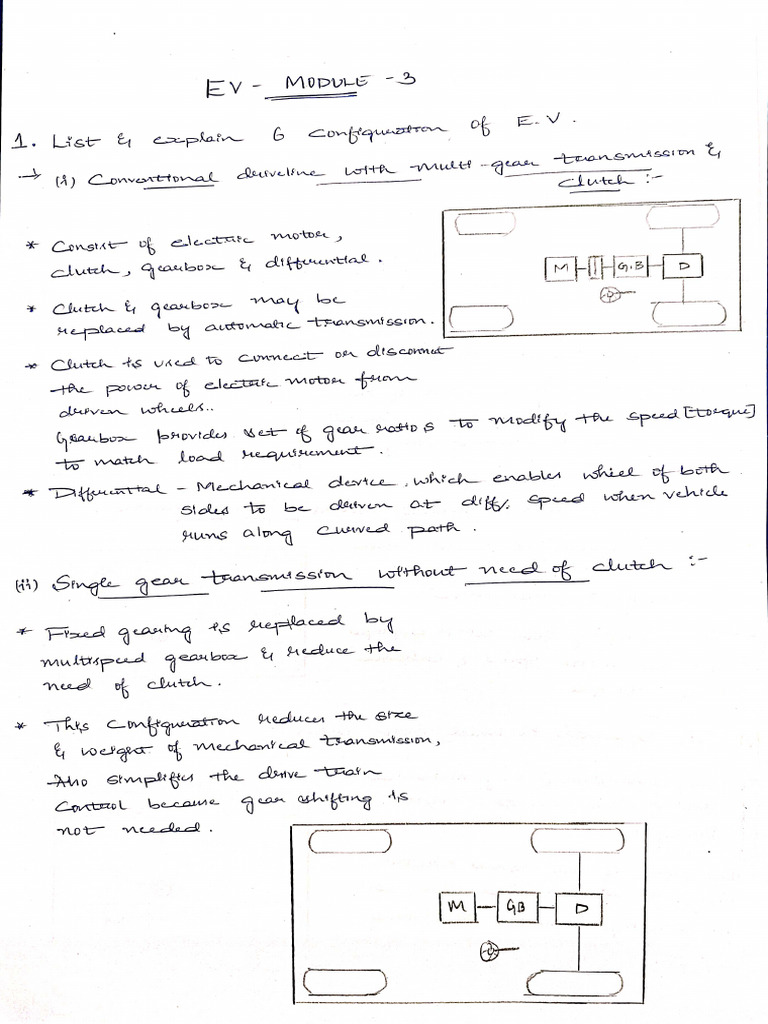 EV - MODULE - 3
1. List & explain 6 configuration of E.V.
→ (i) Conventional driveline with multi-gear transmission &
clutch :-
* Consist of electric motor,
clutch, gearbox & differential.
M G.B D
* Clutch & gearbox may be
replaced by automatic transmission.
* Clutch is used to connect or disconnect
the power of electric motor from
driven wheels..
Gearbox provides set of gear ratios to modify the speed [torque]
to match load requirement.
* Differential - Mechanical device, which enables wheel of both
sides to be driven at diff/. speed when vehicle
runs along curved path.
(ii) Single gear transmission without need of clutch :-
* Fixed gearing is replaced by
multispeed gearbox & reduce the
need of clutch.
* This configuration reduces the size
& weight of mechanical transmission,
Also simplifies the drive train
control because gear shifting is
not needed.
M GB D